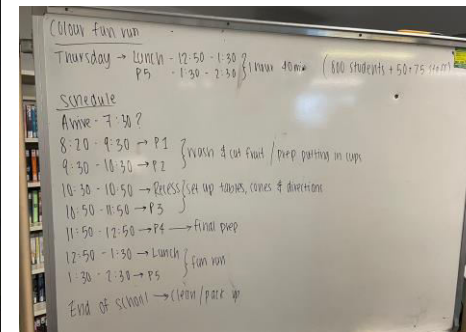 Colour fun run
Thursday → Lunch - 12:50 - 1:30
P5 - 1:30 - 2:30 } 1 hour 40min (800 students + 50-75 staff)
Schedule
Arrive - 7:30?
8:20 - 9:30 → P1
9:30 - 10:30 → P2 } wash & cut fruit / prep putting in cups
10:30 - 10:50 → Recess
10:50 - 11:50 → P3 } set up tables, cones & directions
11:50 - 12:50 → P4 → Final prep
12:50 - 1:30 → Lunch
1:30 - 2:30 → P5 } fun run
End of school → clean / pack up